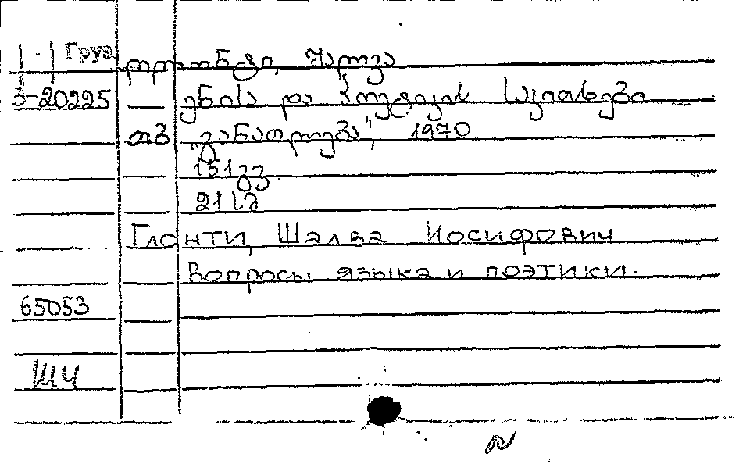 Груз
ღლონტი, შალვა
3-20225 ენისა და პოეტიკის საკითხები
თბ "განათლება", 1970
151 გვ.
Глонти, Шалва Иосифович
Вопросы языка и поэтики.
65053